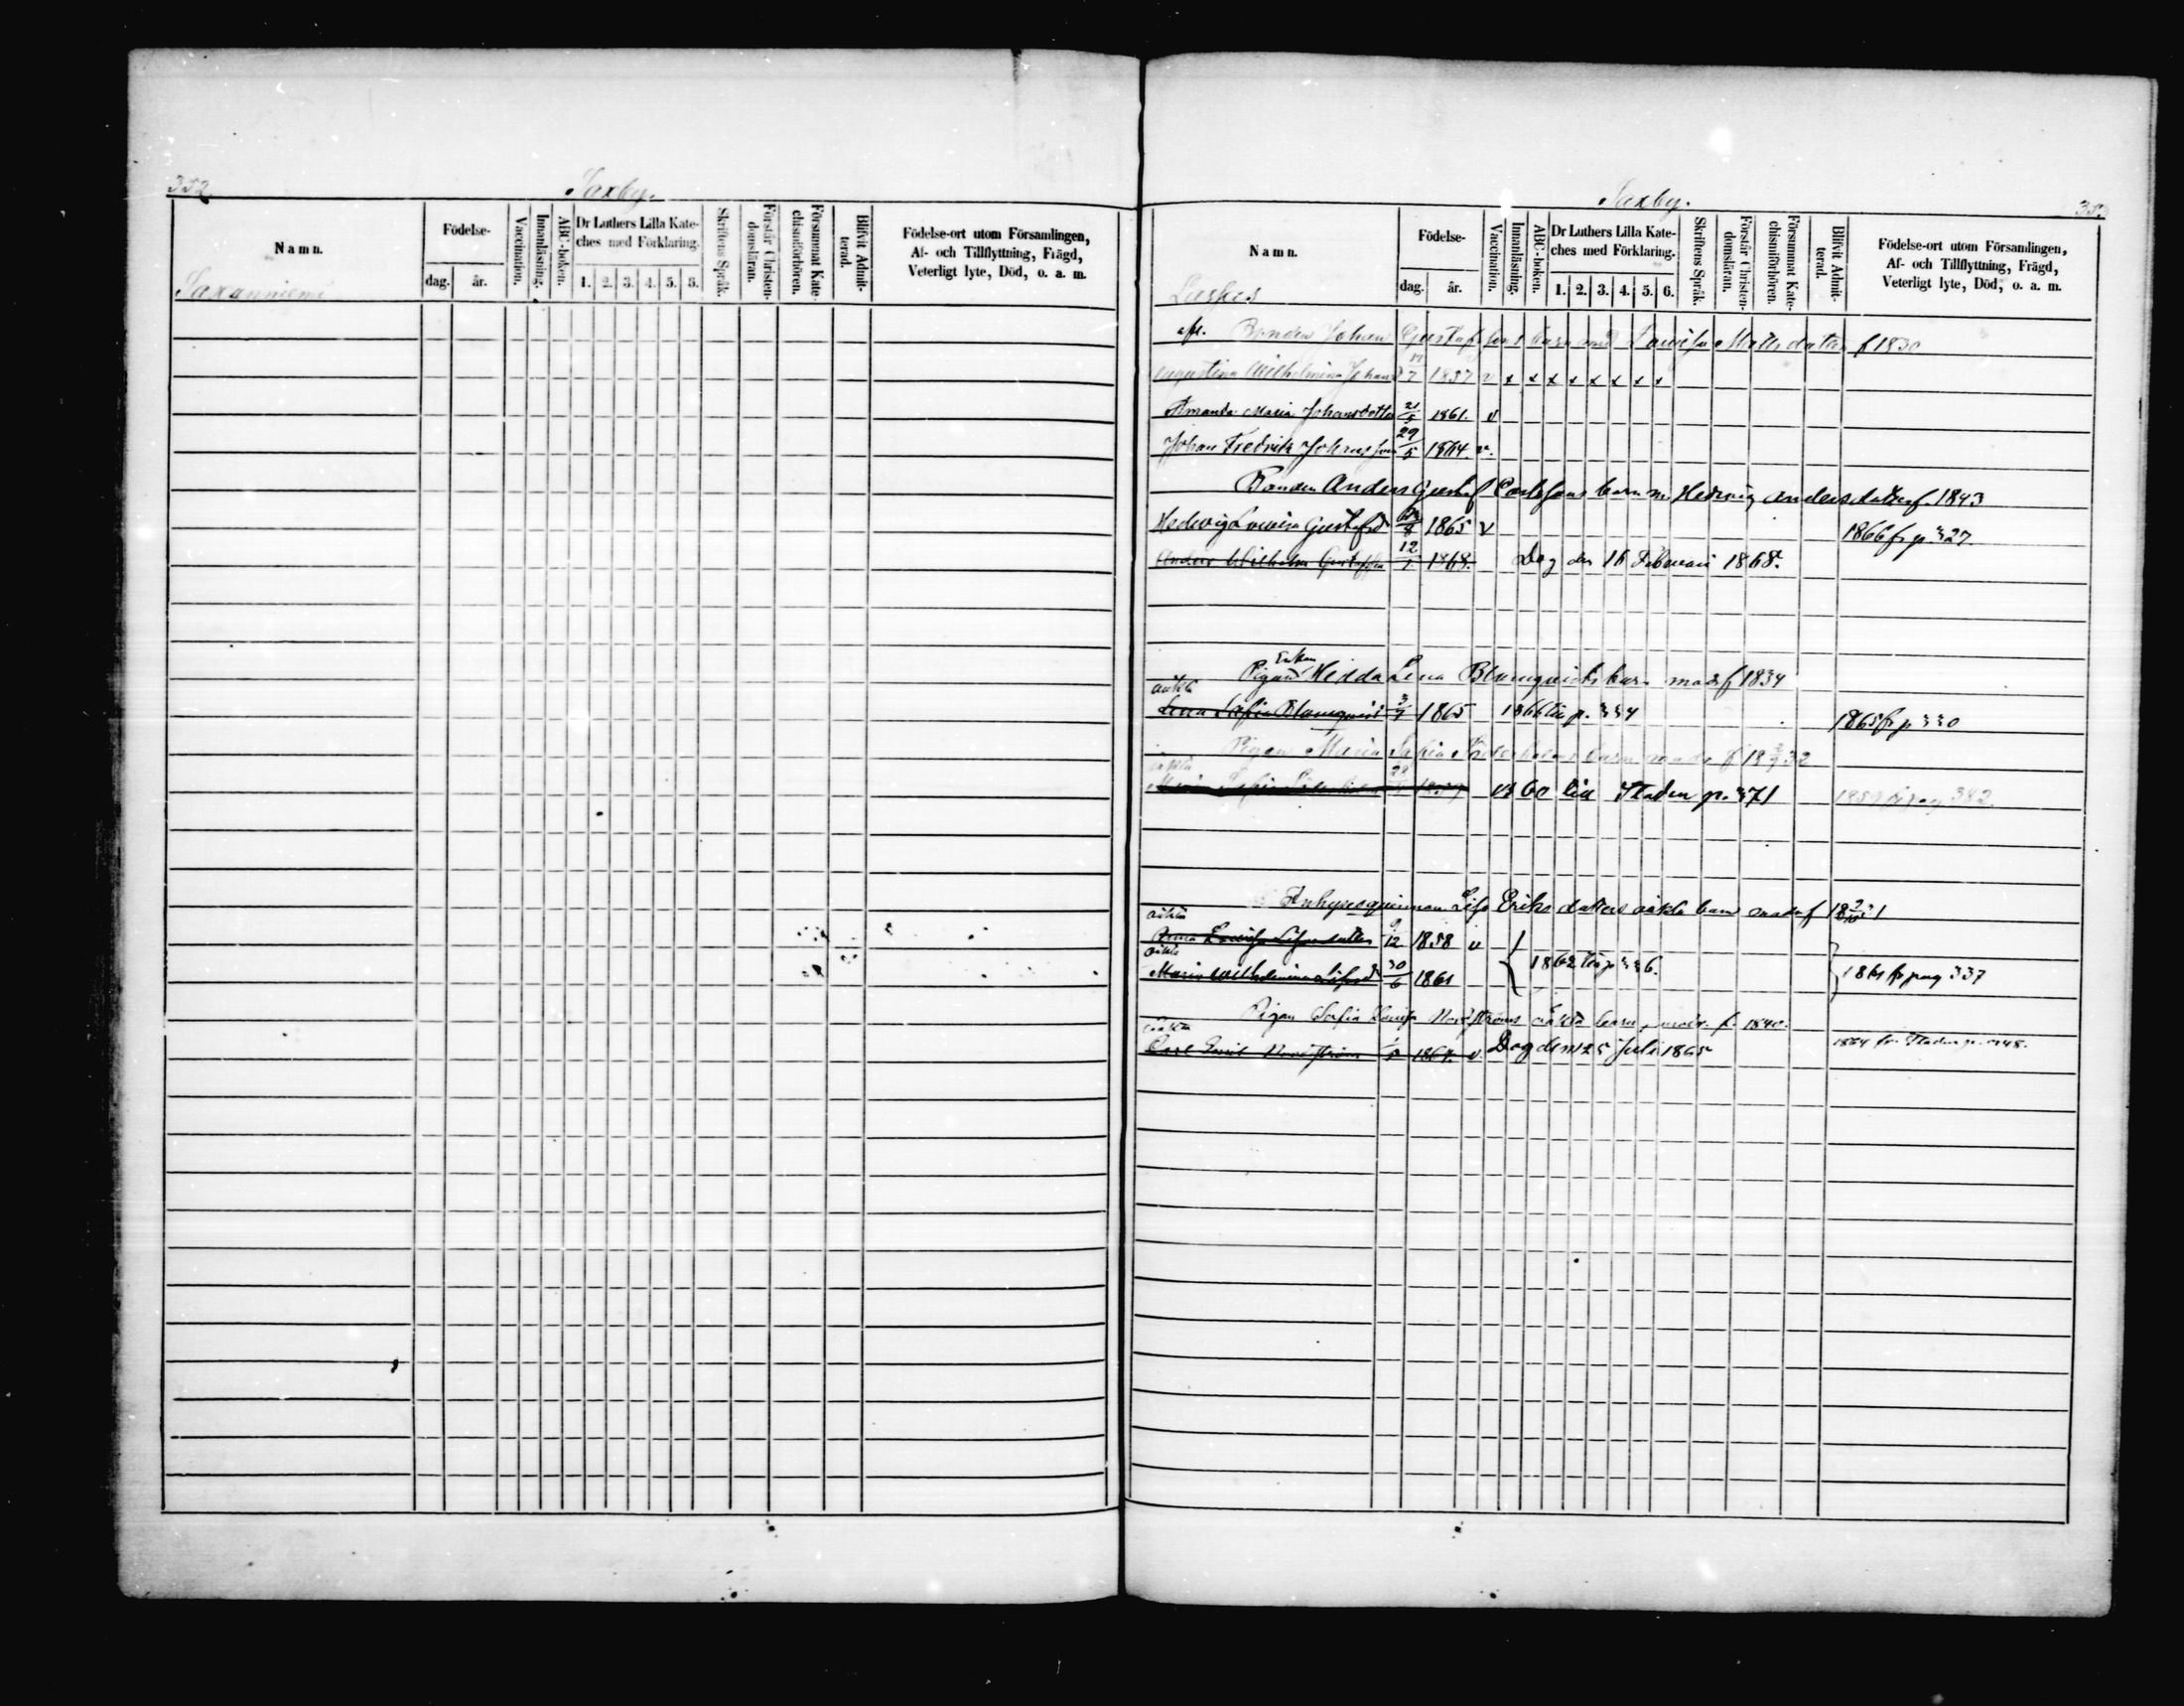 352
Saxby.
Namn.
Födelse-
dag.
år.
Vaccination.
Innanläsning.
ABC-boken.
Dr Luthers Lilla Kateches med Förklaring.
1. 2. 3. 4. 5. 6.
Skriftens Språk.
Förstår Christendomsläran.
Försummat Katechismiförhören.
Blifvit Admitterad.
Födelse-ort utom Församlingen,
Af- och Tillflyttning, Frägd,
Veterligt lyte, Död, o. a. m.
Saxanniemi
Saxby.
353
Namn.
Födelse-
dag.
år.
Vaccination.
Innanläsning.
ABC-boken.
Dr Luthers Lilla Kateches med Förklaring.
1. 2. 3. 4. 5. 6.
Skriftens Språk.
Förstår Christendomsläran.
Försummat Katechismiförhören.
Blifvit Admitterad.
Födelse-ort utom Församlingen,
Af- och Tillflyttning, Frägd,
Veterligt lyte, Död, o. a. m.
Bonden Johan Gustafssons barn med Lovisa Mattsdotter f 1830
Augustina Wilhelmina Johans 1857 v x x x x x x x x
Amanda Maria Johansdotter 21/5 1861. v
Johan Fredrik Johansson 29/5 1864. v.
Bonden Anders Gustaf Carlssons barn m Hedwig Andersdotter f. 1843
Hedwig Lovisa Gustafsd 1865 v 1866 fr p. 327
Anders Wilhelm Gustafsson 12/1 1868. Dog den 16 Februari 1868.
Enkan
Pigan Hedda Lena Blomqvists barn modr f 1834
oäkta
Lena Sofia Blomqvist 3/7 1865 1866 till p. 334 1865 fr p 330
Pigan Maria Sofia barn modr f 18 32
oäkta
Maria Sofia 1860 till Staden p. 371 1859 fr pag 382
Inhysesqvinnan Lisa Eriksdotters oäkta barn modr f 18 31
oäkta
Anna Lovisa Lisasdotter 9/12 1858 v
oäkta
Maria Wilhelmina Lisasd 30/6 1861 1862 till p 336. 1861 fr pag 337
Pigan Sofia Lovisa Nordströms oäkta barn, modr. f. 1840.
oäkta
Carl Emil Nordström 1864. v Dog den 25 Juli 1865 1864 fr Staden p.